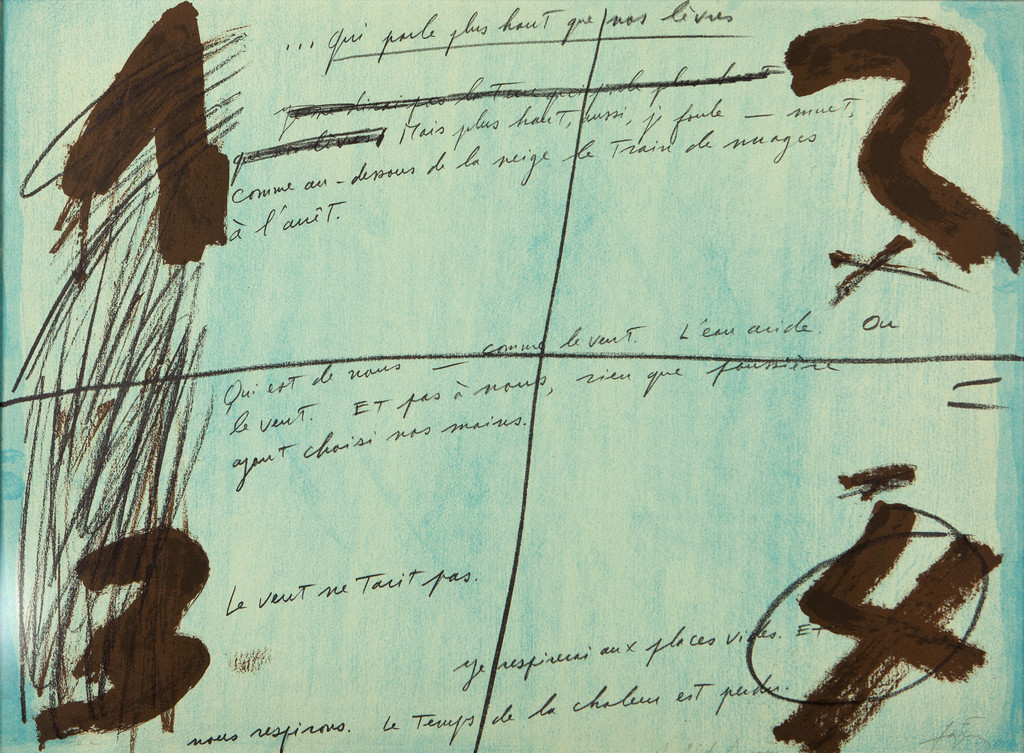 1 ... qui parle plus haut que nos lèvres 2
je ne dirai pas la que parle plus haut
que lèvres Mais plus haut, aussi, je foule — muet,
comme au-dessous de la neige le train de nuages
à l'arrêt.
— comme le vent. L'eau aride. Ou
Qui est de nous
le vent. Et pas à nous, rien que poussière
ayant choisi nos mains.
=
Le vent ne tarit pas.
3 4
Je respirerai aux places vides. Et
nous respirons. Le temps de la chaleur est perdu.